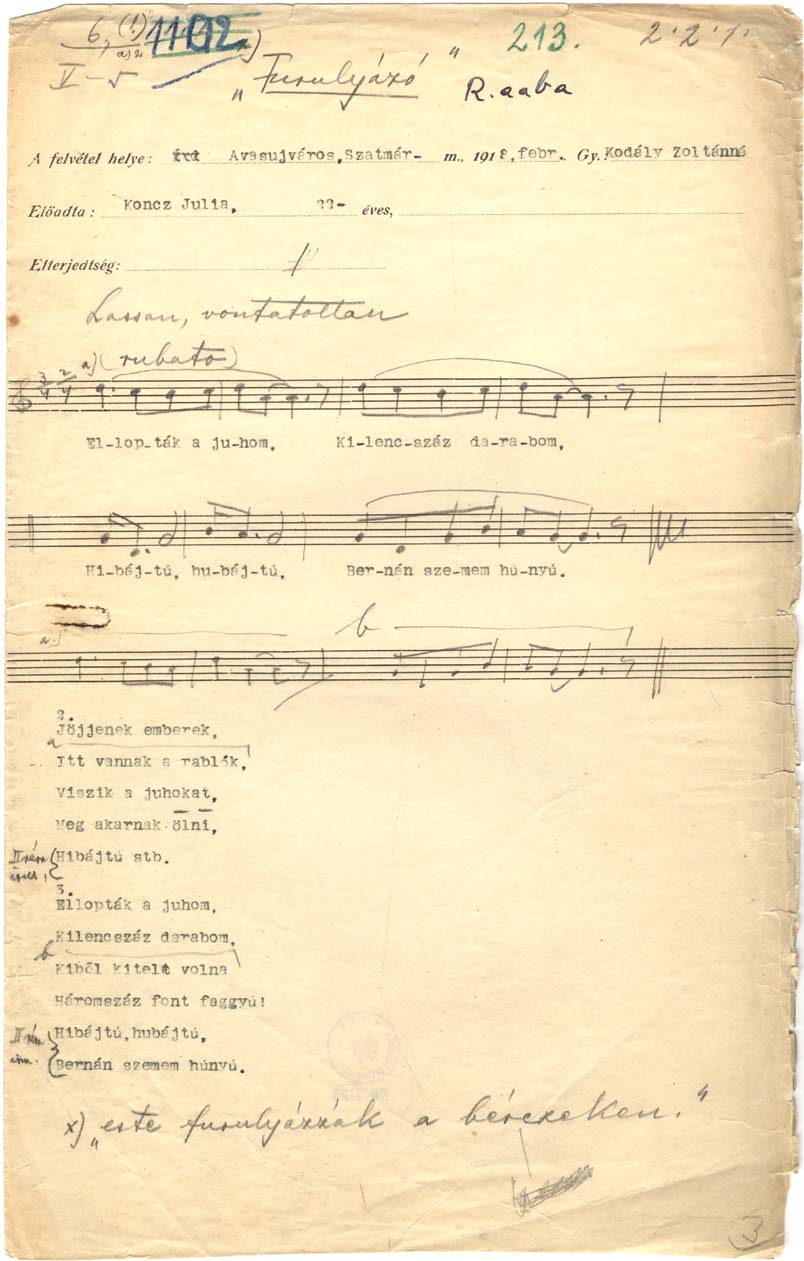 6, (1)
11012
213.
2.2.1.
V-5
"Furulyázó"
R.aaba
A felvétel helye: Avasujváros, Szatmár- m., 1918, febr. Gy. Kodály Zoltánné
Előadta: Koncz Julia, 22- éves,
Elterjedtség:
Lassan, vontatottan
a) (rubato)
3/4 2/4
El-lop-ták a ju-hom, Ki-lenc-száz da-ra-bom,
Hi-báj-tú, hu-báj-tú, Ber-nán sze-mem hú-nyú.
b
2.
Jöjjenek emberek,
a
Itt vannak a rablók,
Viszik a juhokat,
Meg akarnak ölni,
Hibájtú stb.
3.
Ellopták a juhom,
Kilencszáz darabom,
b
Kiből kitelt volna
Háromszáz font faggyú!
Hibájtú, hubájtú,
Bernán szemem húnyú.
x) "este furulyázzák a bérczeken."
3